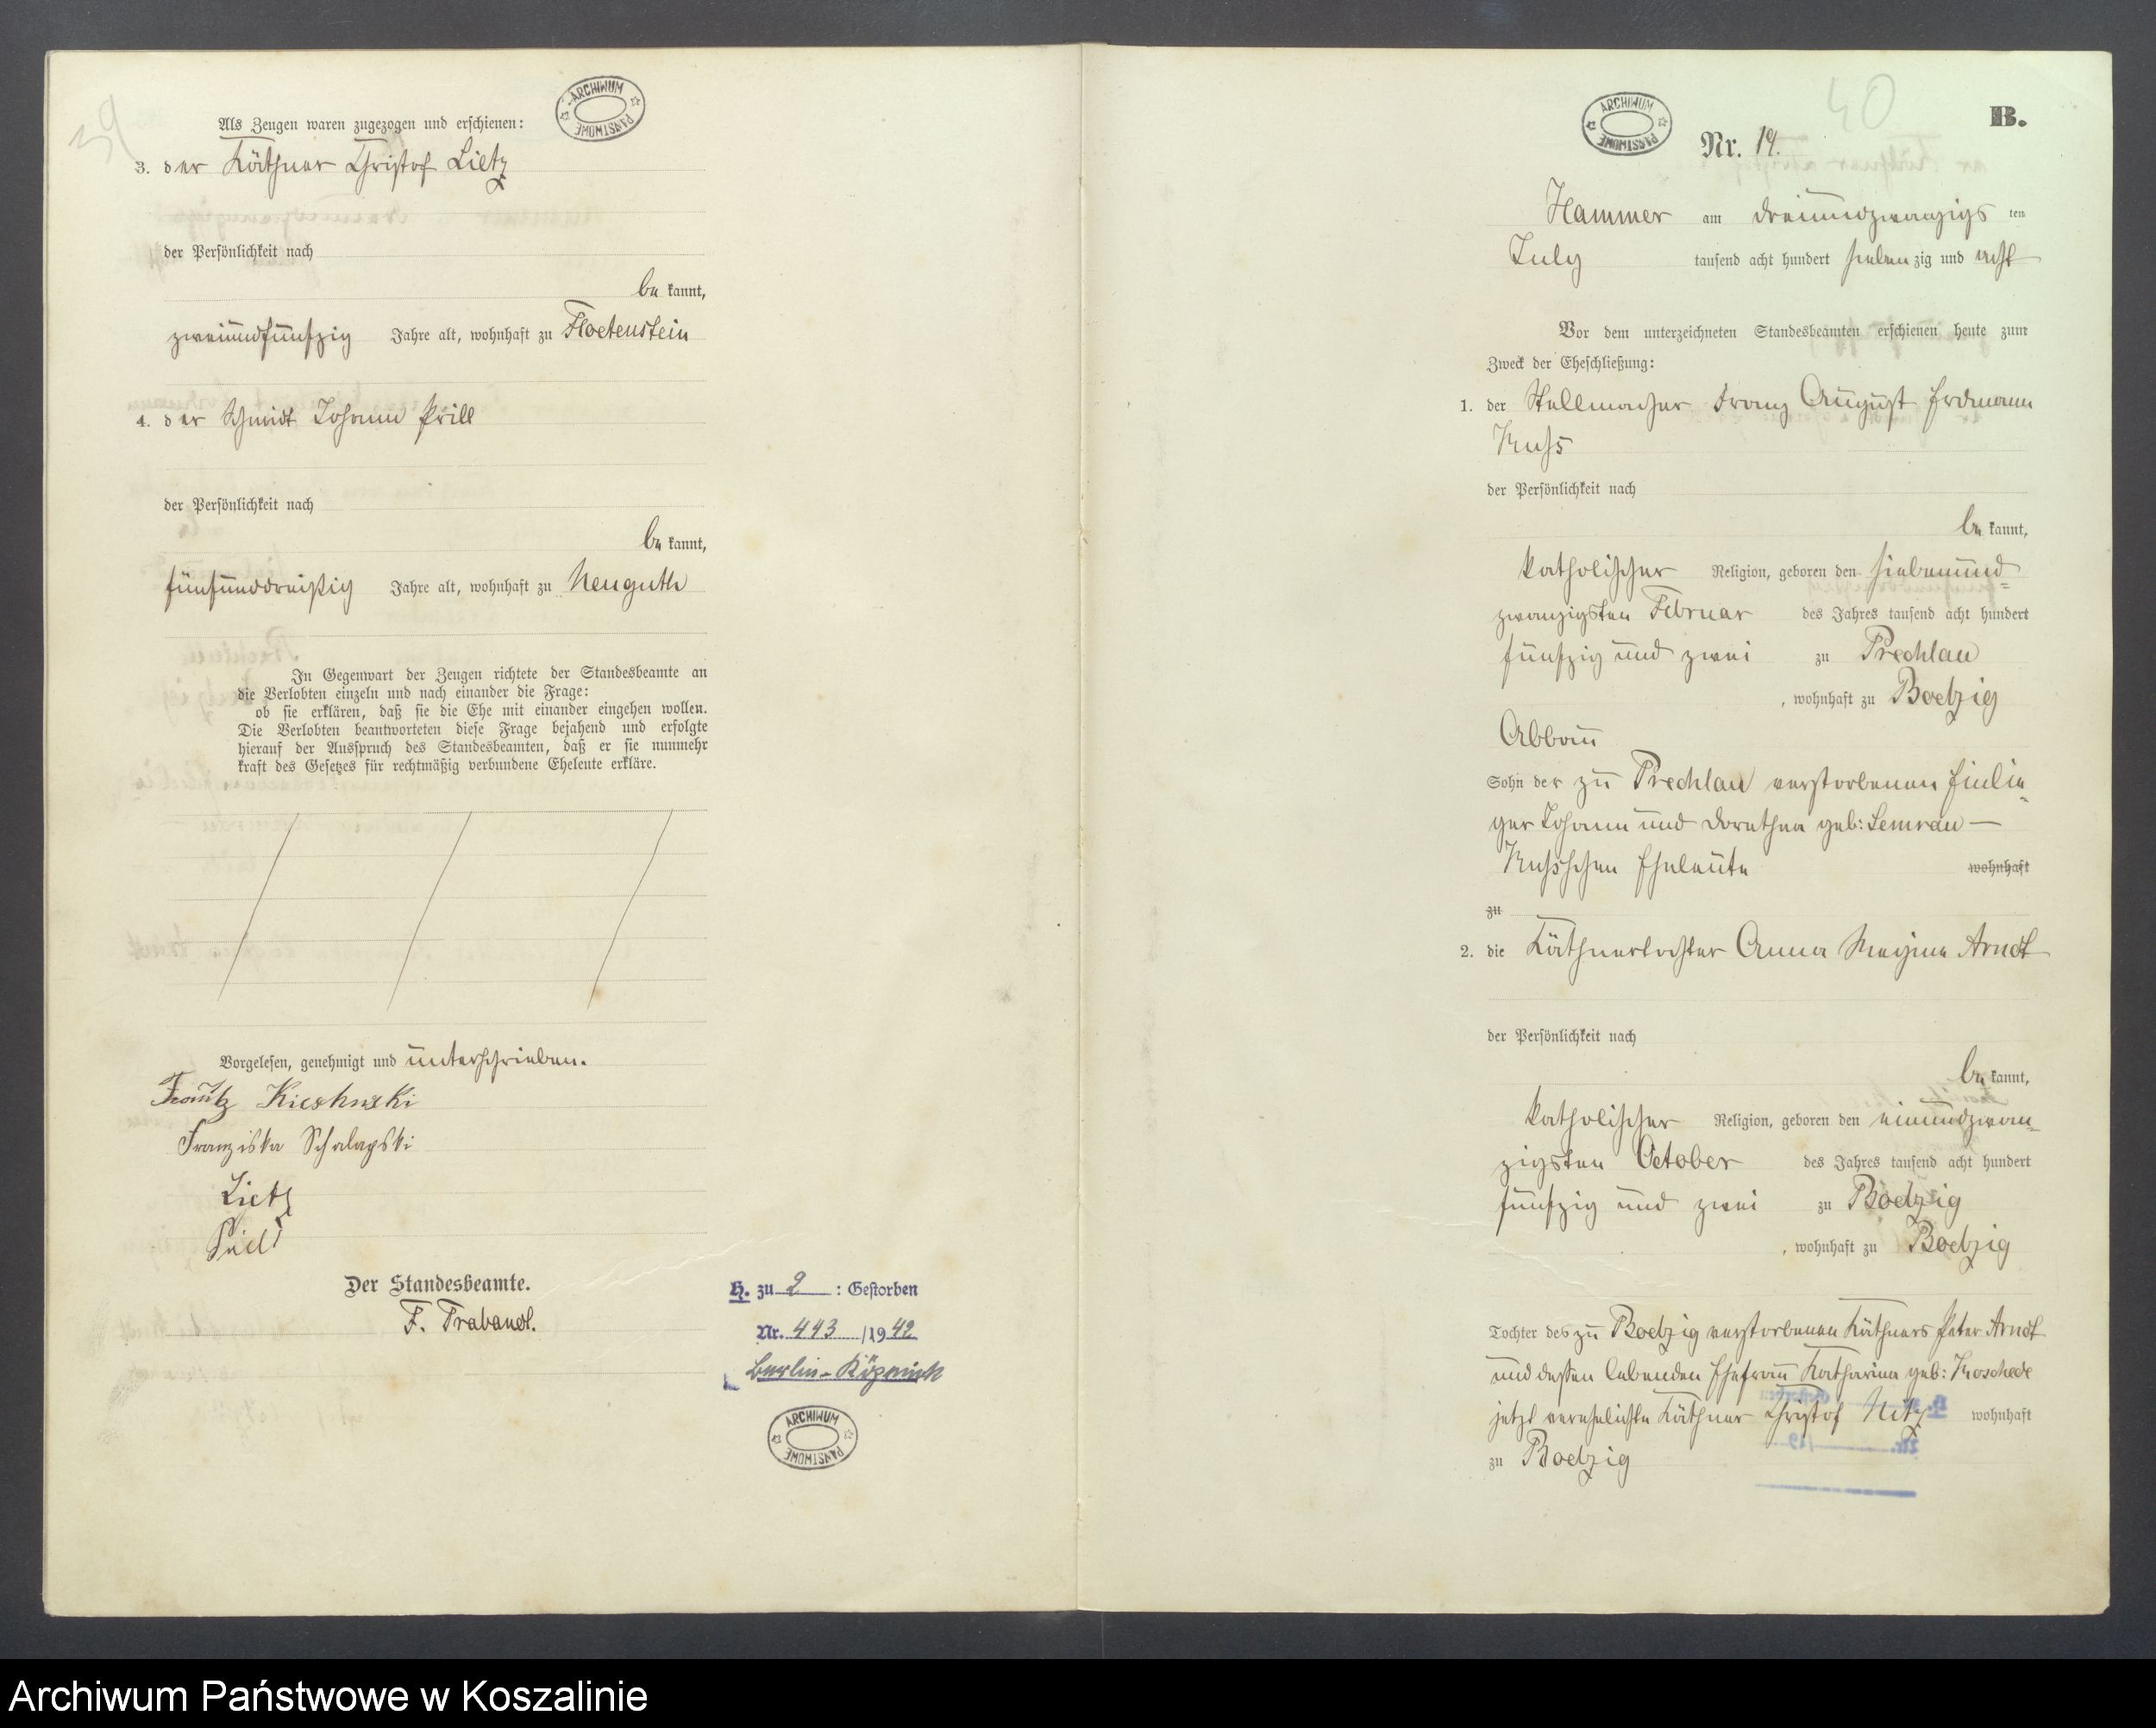 39
Als Zeugen waren zugezogen und erschienen:
3. der Käthner Christof Lietz
der Persönlichkeit nach
be kannt,
zweiundfünfzig Jahre alt, wohnhaft zu Floetenstein
4. der Schmidt Johann Prill
der Persönlichkeit nach
be kannt,
fünfunddreißig Jahre alt, wohnhaft zu Neuguth
In Gegenwart der Zeugen richtete der Standesbeamte an
die Verlobten einzeln und nach einander die Frage:
ob sie erklären, daß sie die Ehe mit einander eingehen wollen.
Die Verlobten beantworteten diese Frage bejahend und erfolgte
hierauf der Ausspruch des Standesbeamten, daß er sie nunmehr
kraft des Gesetzes für rechtmäßig verbundene Eheleute erkläre.
Vorgelesen, genehmigt und unterschrieben.
Franziska Schalapski
Lietz
Prill
Der Standesbeamte.
F. Trabandt.
H. zu 2 : Gestorben
Nr. 443 /1942
Berlin-Köpenick
ARCHIWUM PAŃSTWOWE
ARCHIWUM PAŃSTWOWE
40
B.
ARCHIWUM PAŃSTWOWE
Nr. 19.
Hammer am dreiundzwanzigs ten
July tausend acht hundert sieben zig und acht
Vor dem unterzeichneten Standesbeamten erschienen heute zum
Zweck der Eheschließung:
1. der Stellmacher Franz August Erdmann
Kuhs
der Persönlichkeit nach
be kannt,
katholischer Religion, geboren den siebenund-
zwanzigsten Februar des Jahres tausend acht hundert
fünfzig und zwei zu Prechlau
, wohnhaft zu Boelzig
Abbau
Sohn der zu Prechlau verstorbenen Einlie-
ger Johann und Dorothea geb: Semrau —
Kuhs'schen Eheleute wohnhaft
zu
2. die Käthnertochter Anna Regine Arndt
der Persönlichkeit nach
be kannt,
katholischer Religion, geboren den einundzwan-
zigsten October des Jahres tausend acht hundert
fünfzig und zwei zu Boelzig
, wohnhaft zu Boelzig
Tochter des zu Boelzig verstorbenen Käthners Peter Arndt
und dessen lebenden Ehefrau Katharina geb: Koschede
jetzt verehelichte Käthner Christof Nitz wohnhaft
zu Boelzig
Archiwum Państwowe w Koszalinie